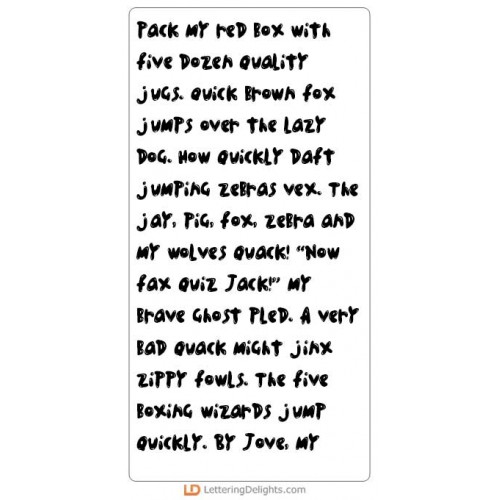 Pack my red box with
five dozen quality
jugs. Quick brown fox
jumps over the lazy
dog. How quickly daft
jumping zebras vex. The
jay, pig, fox, zebra and
my wolves quack! "Now
fax quiz Jack!" My
brave ghost pled. A very
bad quack might jinx
zippy fowls. The five
boxing wizards jump
quickly. By Jove, my
LD LetteringDelights.com